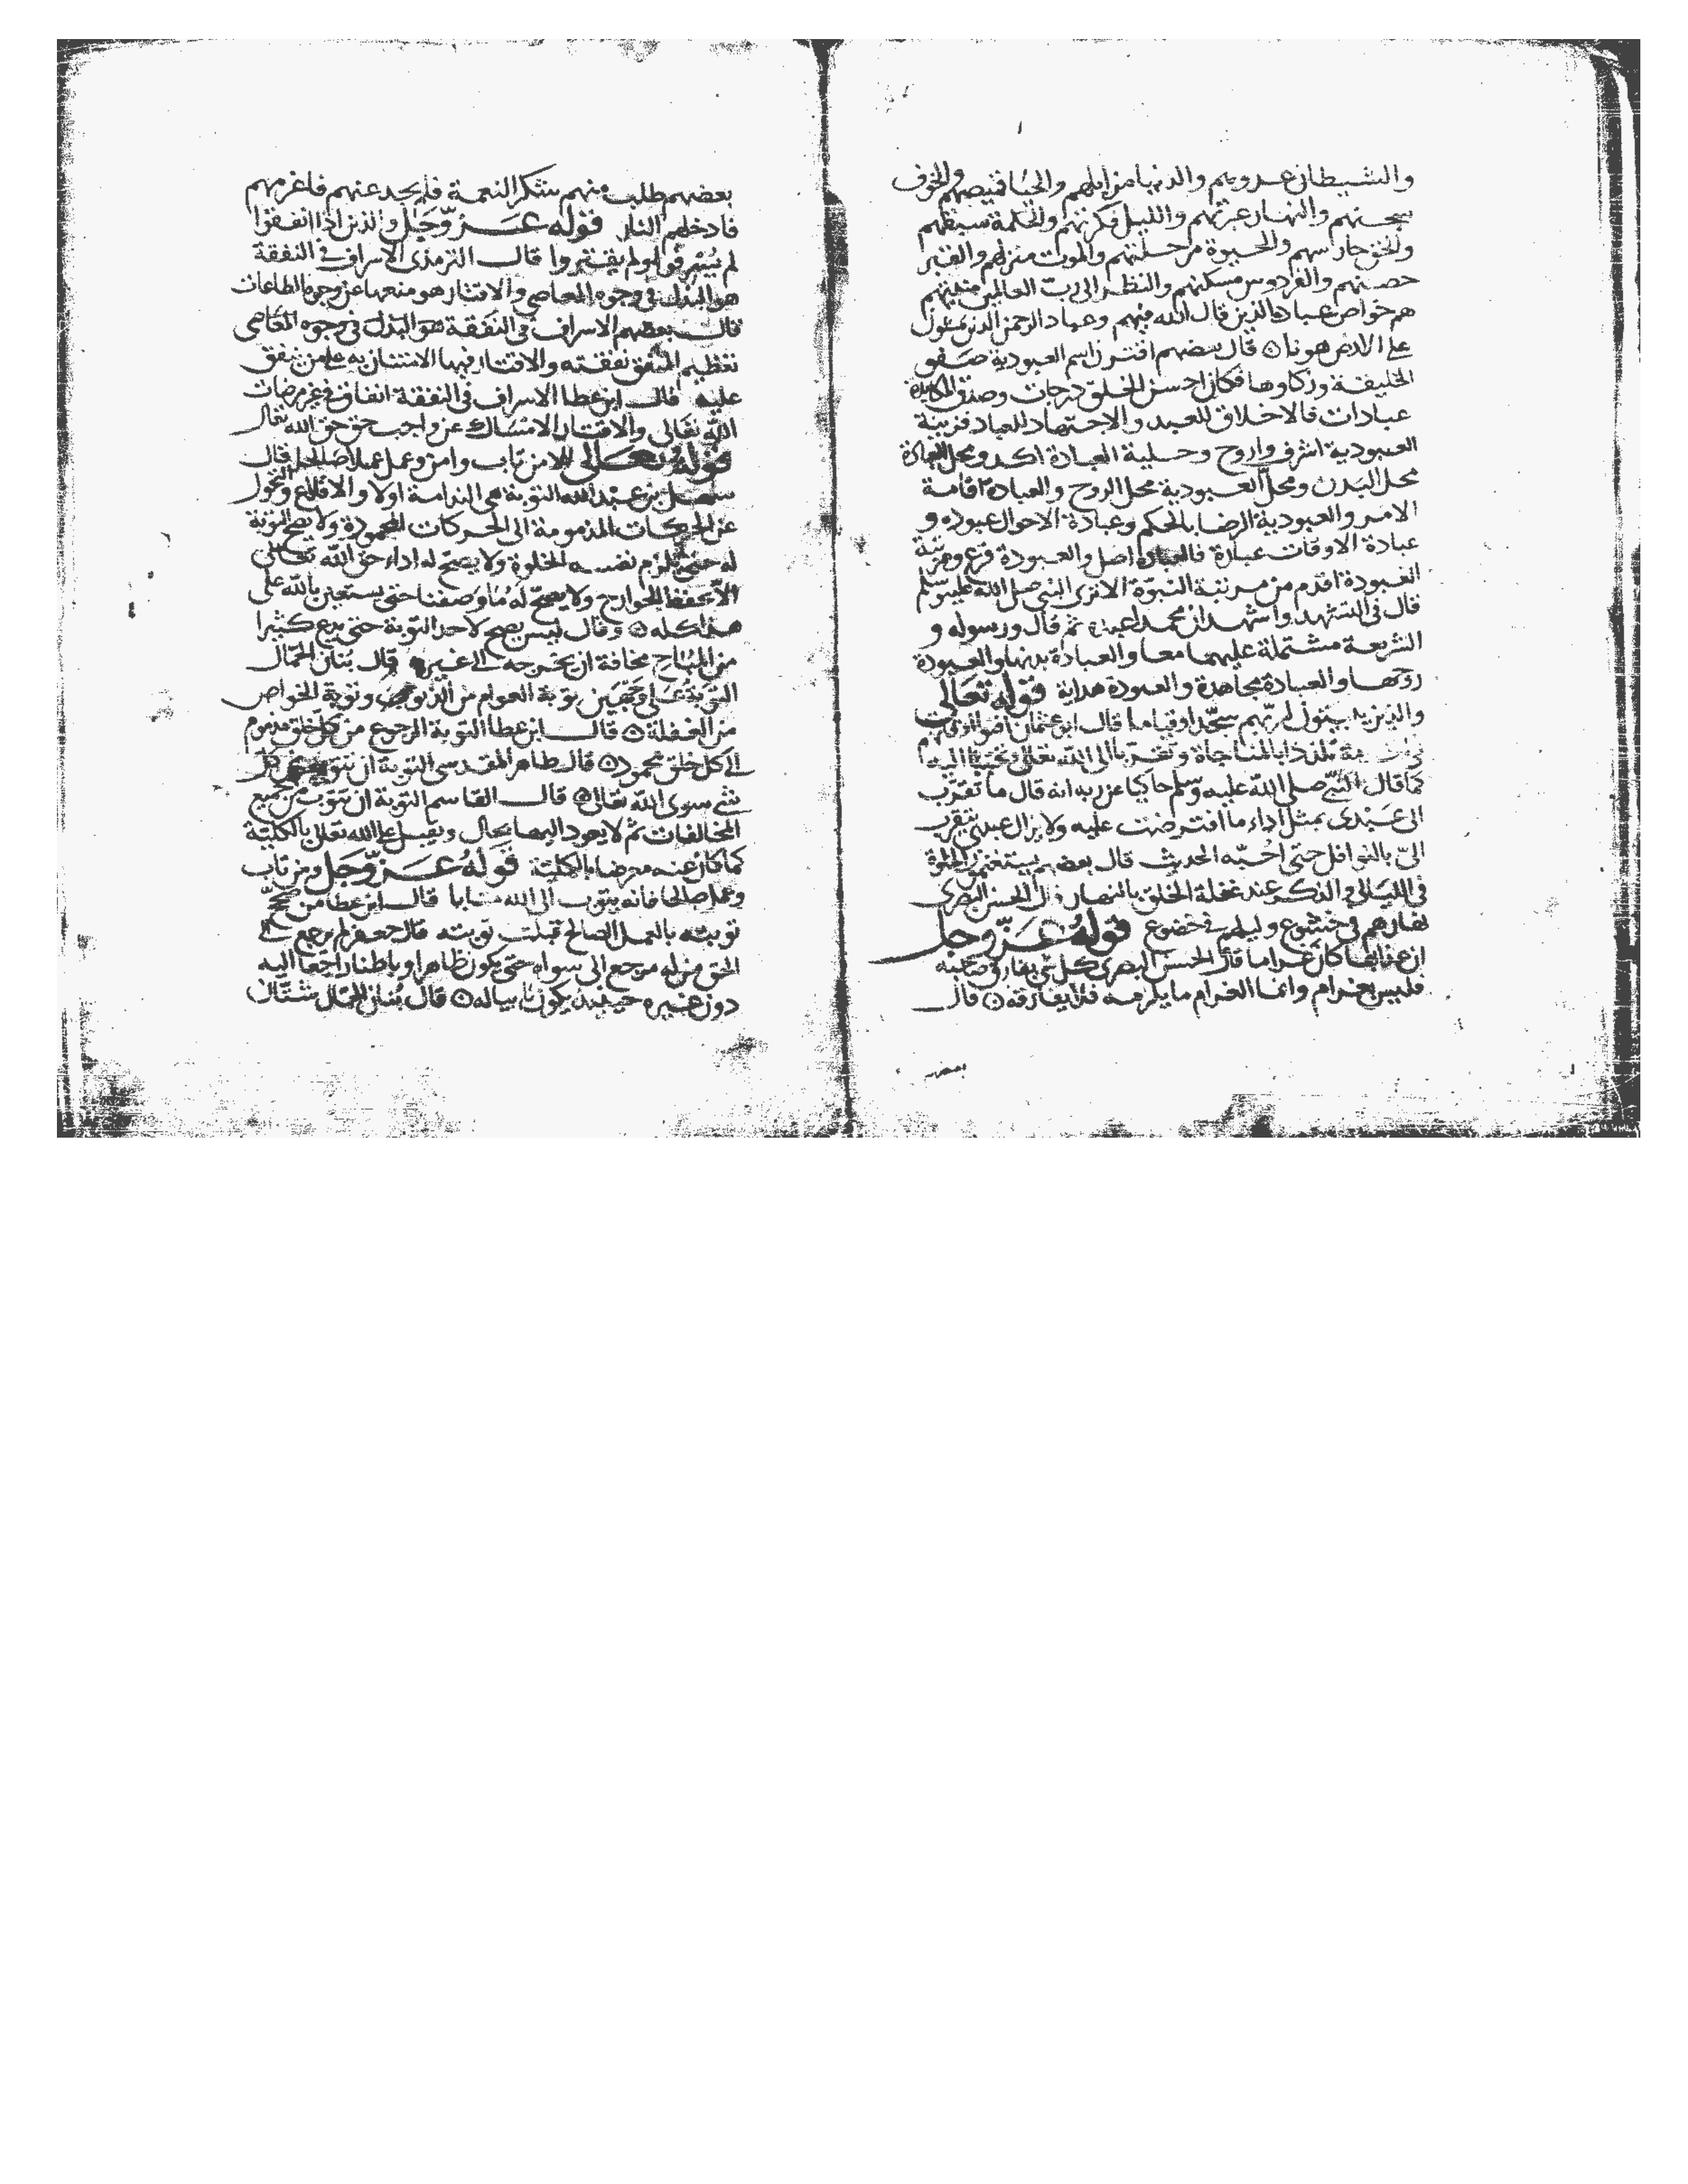 والشيطان عدويهم والدنيا مزابلهم والحيا قميصهم والخوف
سجنهم والنهار عبرتهم والليل فكرتهم والحكمة سيفهم
والحق حارسهم والحيوة مرحلتهم والموت منزلهم والقبر
حصنهم والفردوس مسكنهم والنظر الى رب العالمين منيتهم
هم خواص عباده الذين قال الله فيهم وعباد الرحمن الذين يمشون
على الارض هونا ۞ قال بعضهم افترز اسم العبودية صفو
الخليقة وزكاوها فكان احسن الخلق درجات وصدق
عبادات فالاخلاق للعبيد والاجتهاد للعباد فزينة
العبودية اشرف واروح وحلية العبادة اكد ومحل العبادة
محل البدن ومحل العبودية محل الروح والعبادة اقامة
الامر والعبودية الرضا بالحكم وعبادة الاحوال عبوده و
عبادة الاوقات عبادة فالعبادة اصل والعبودة فرع ومرتبة
العبودة اقدم من مرتبة النبوة الا ترى النبي صلى الله عليه وسلم
قال في التشهد واشهد ان محمدا عبده ثم قال ورسوله و
الشريعة مشتملة عليهما معا والعبادة بدنها والعبودة
روحها والعبادة مجاهدة والعبودة هداية قوله تعالى
والذين يبيتون لربهم سجدا وقياما قال ابو عثمان
تلذذا بالمناجاة وتقربا الى الله تعالى وتحببا اليه
كما قال النبي صلى الله عليه وسلم حاكيا عن ربه انه قال ما تقرب
الى عبدى بمثل اداء ما افترضت عليه ولا يزال عبدي يتقرب
الىّ بالنوافل حتى احبه الحديث قال بعضهم يستغنمون الخلوة
فى الليالي والذكر عند غفلة الخلق بالنهار قال الحسن البصرى
نهارهم فى خشوع وليلهم في خضوع قوله عز وجل
ان عذابها كان غراما قال الحسن البصرى كل شي يفارق صاحبه
فليس بغرام وانما الغرام ما يلزمه فلا يفارقه ۞ قال
بعضهم
بعضهم طلب منهم شكر النعمة فلم يجد عنهم فاغرمهم
فادخلهم النار قوله عز وجل والذين اذا انفقوا
لم يسرفوا ولم يقتروا قال الترمذى الاسراف في النفقة
هو البذل في وجوه المعاصي والاقتار هو منعها عن وجوه الطاعات
قال بعضهم الاسراف فى النفقة هو البذل فى وجوه المعاصى
تعظيم المنفق نفقته والاقتار فيها الامتنان به على من ينفق
عليه قال ابن عطا الاسراف فى النفقة انفاق في غير مرضات
الله تعالى والاقتار الامساك عن واجب حق حق الله تعالى
قوله تعالى الا من تاب وامن وعمل عملا صالحا قال
سهل بن عبد الله التوبة هي الندامة اولا والاقلاع والتحول
عن الحركات المذمومة الى الحركات المحمودة ولا يصح التوبة
له حتى يلزم نفسه الخلوة ولا يصح له اداء حق الله تعالى
الا بحفظ الجوارح ولا يصح له ما وصفنا حتى يستعين بالله على
هذا كله ۞ وقال ليس يصح لاحد التوبة حتى يدع كثيرا
من المباح مخافة ان يخرجه الى غيره قال بنان الحمال
التوبة على وجهين توبة العوام من الذنوب وتوبة الخواص
من الغفلة ۞ قال ابن عطا التوبة الرجوع من كل خلق مذموم
الى كل خلق محمود ۞ قال طاهر المقدسى التوبة ان تتوب من كل
شي سوى الله تعالى ۞ قال القاسم التوبة ان تتوب من جميع
المخالفات ثم لا يعود اليها بحال ويقبل على الله تعالى بالكلية
كما كان عنه معرضا بالكلية قوله عز وجل ومن تاب
وعمل صالحا فانه يتوب الى الله متابا قال ابن عطا من صحح
توبته بالعمل الصالح قبلت توبته قال جعفر لم يرجع الى
الحق من له مرجع الى سواه حتى يكون ظاهرا وباطنا راجعا اليه
دون غيره حينيذ يكون تايبا له ۞ قال بنان الحمال شتان